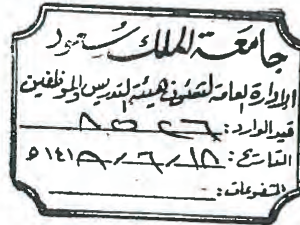 جامعة الملك سعود
الإدارة العامة لشئون هيئة التدريس والموظفين
قيد الوارد: ٨٥٢٦
التاريخ: ١٨/٦/١٤١٩ هـ
المشفوعات: